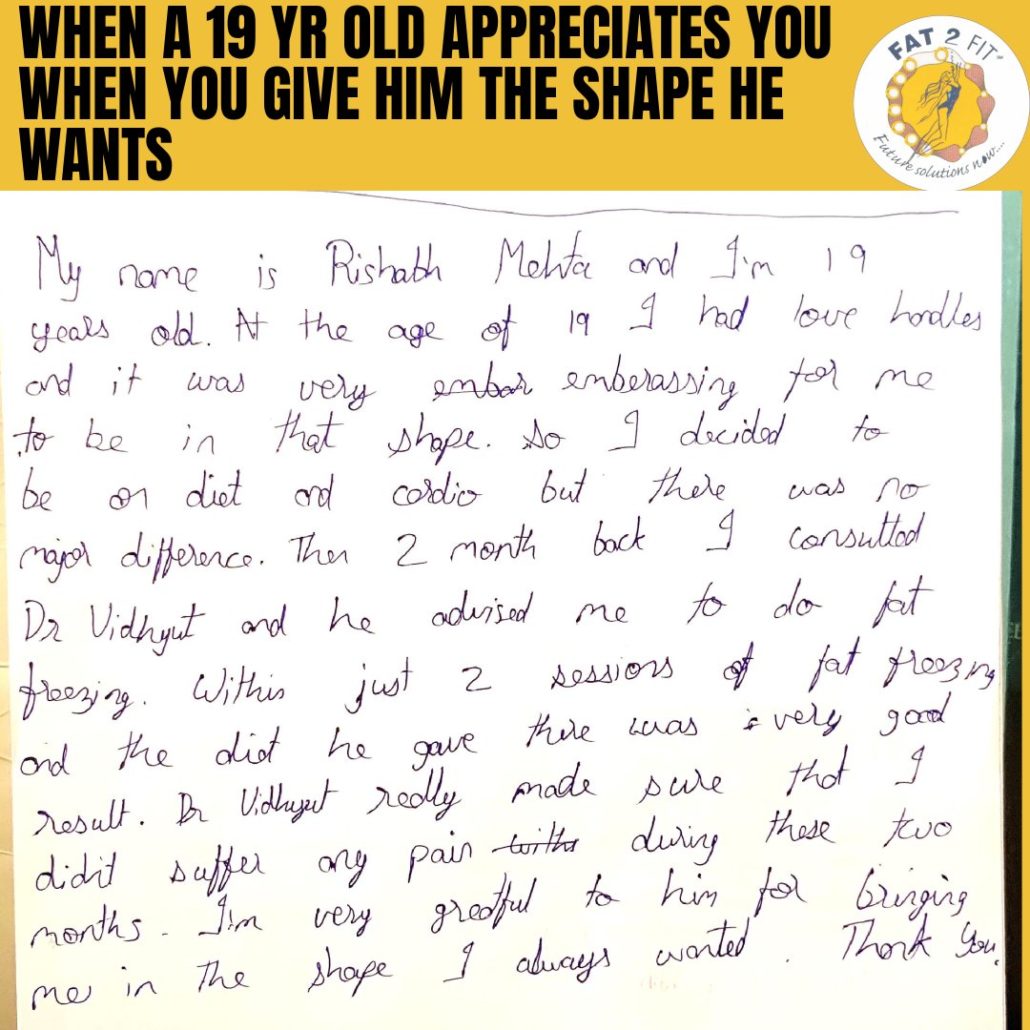 WHEN A 19 YR OLD APPRECIATES YOU
WHEN YOU GIVE HIM THE SHAPE HE
WANTS
FAT 2 FIT
Future solutions now....
My name is Rishabh Mehta and I'm 19
years old. At the age of 19 I had love handles
and it was very embar emberassing for me
to be in that shape. So I decided to
be on diet and cardio but there was no
major difference. Then 2 month back I consulted
Dr Vidhyut and he advised me to do fat
freezing. Within just 2 sessions of fat freezing
and the diet he gave there was very good
result. Dr Vidhyut really made sure that I
didn't suffer any pain during these two
months. I'm very greatful to him for bringing
me in the shape I always wanted. Thank you.